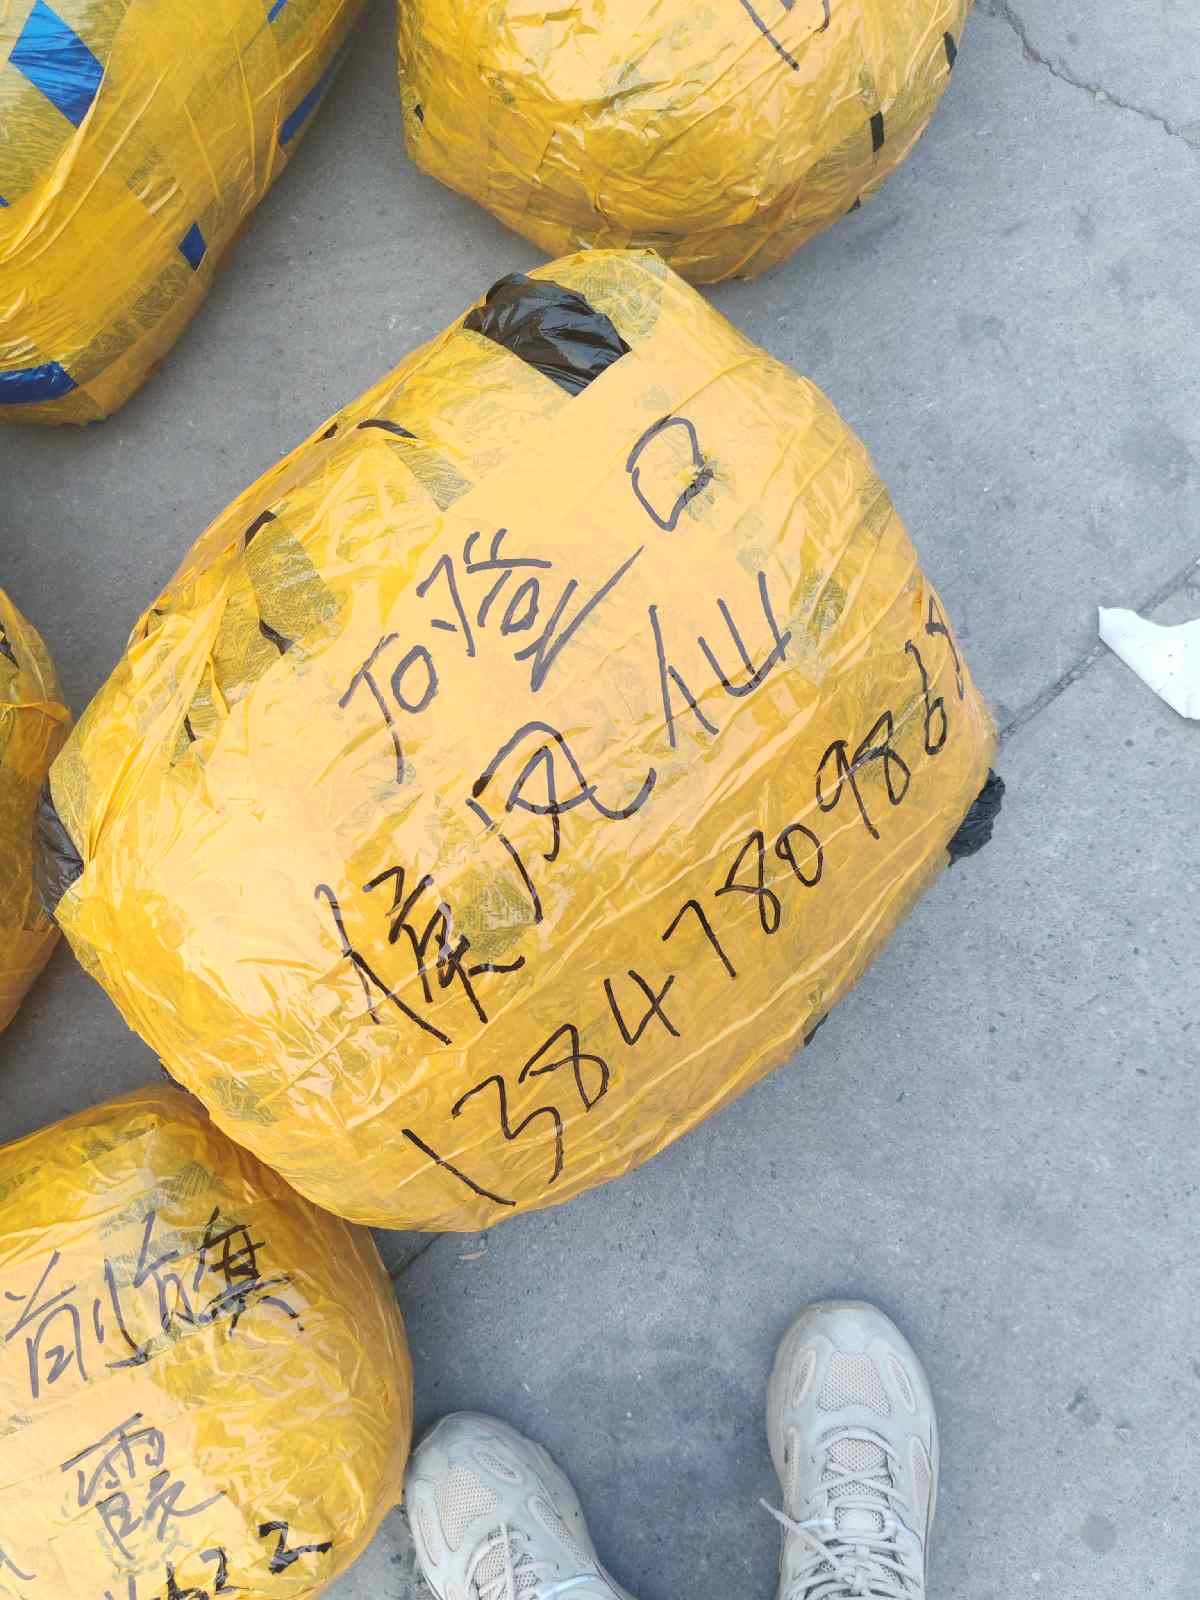 磴口
侯凤仙
13847809868
前旗
霞
622